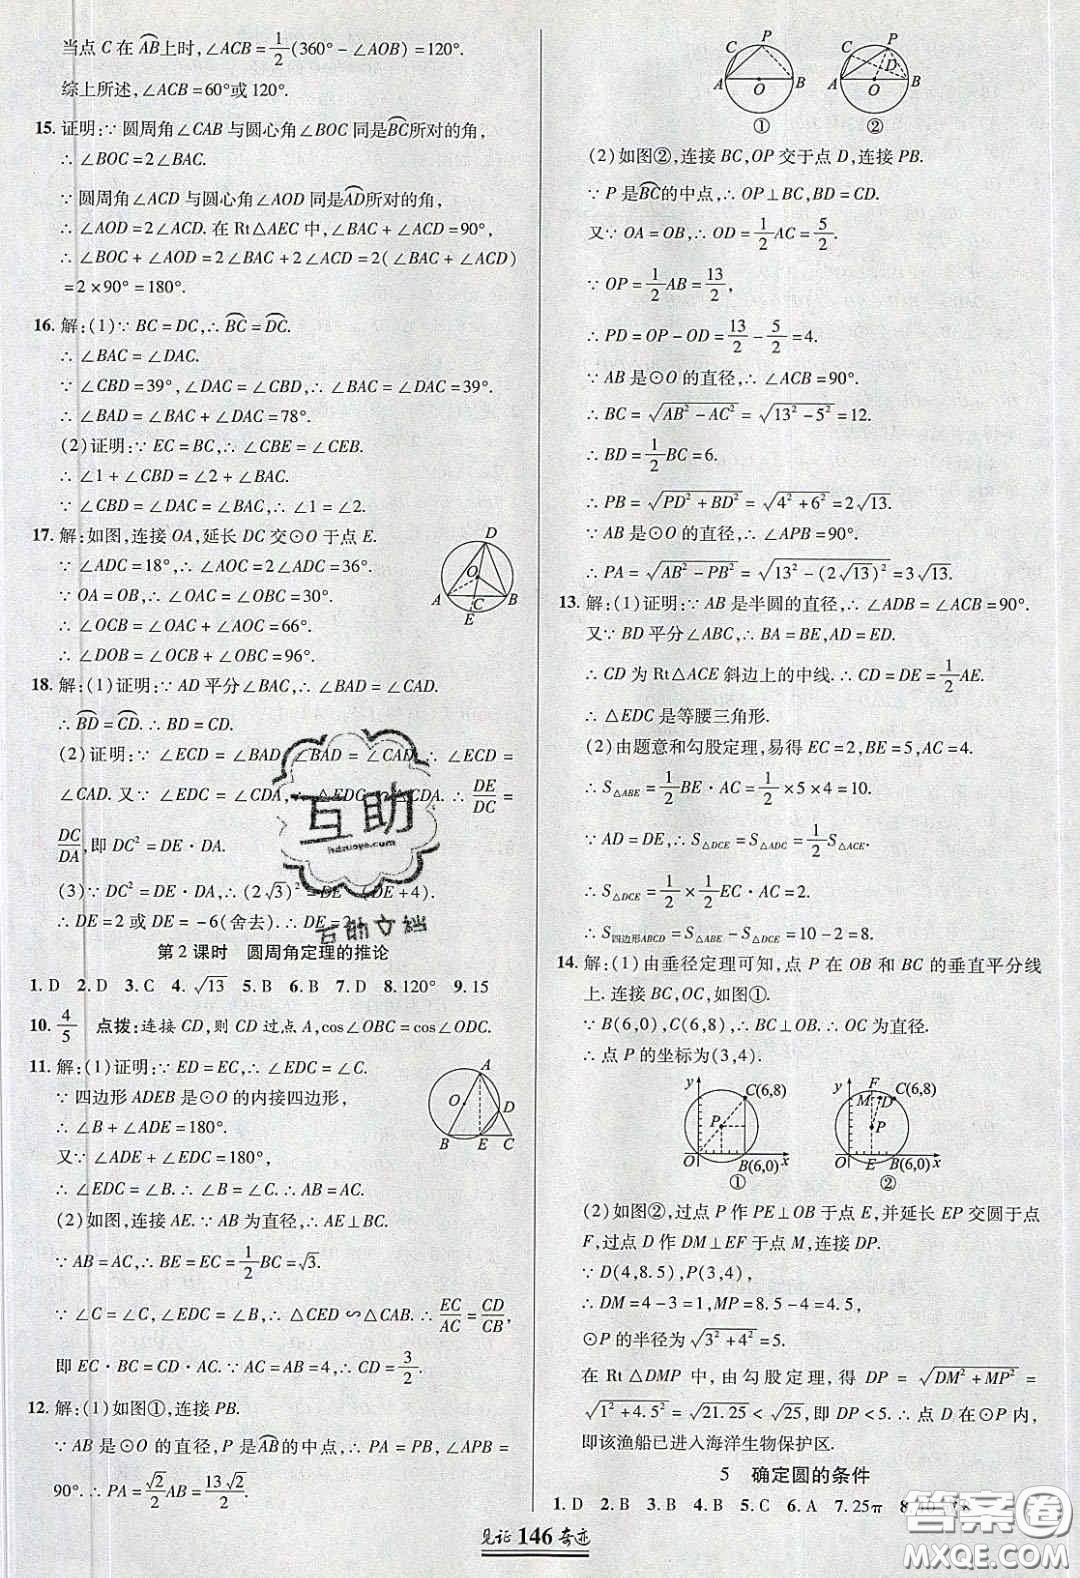 当点 C 在 AB⌢上时,∠ACB = 1/2(360° - ∠AOB) = 120°.
综上所述,∠ACB = 60°或 120°.
15. 证明:∵ 圆周角∠CAB 与圆心角∠BOC 同是BC⌢所对的角,
∴ ∠BOC = 2∠BAC.
∵ 圆周角∠ACD 与圆心角∠AOD 同是AD⌢所对的角,
∴ ∠AOD = 2∠ACD. 在 Rt△AEC 中,∠BAC + ∠ACD = 90°,
∴ ∠BOC + ∠AOD = 2∠BAC + 2∠ACD = 2(∠BAC + ∠ACD)
= 2 × 90° = 180°.
16. 解:(1)∵ BC = DC,∴ BC⌢ = DC⌢.
∴ ∠BAC = ∠DAC.
∵ ∠CBD = 39°,∠DAC = ∠CBD,∴ ∠BAC = ∠DAC = 39°.
∴ ∠BAD = ∠BAC + ∠DAC = 78°.
(2)证明:∵ EC = BC,∴ ∠CBE = ∠CEB.
∴ ∠1 + ∠CBD = ∠2 + ∠BAC.
∵ ∠CBD = ∠DAC = ∠BAC,∴ ∠1 = ∠2.
17. 解:如图,连接 OA,延长 DC 交⊙O 于点 E.
∵ ∠ADC = 18°,∴ ∠AOC = 2∠ADC = 36°.
∵ OA = OB,∴ ∠OAC = ∠OBC = 30°.
∴ ∠OCB = ∠OAC + ∠AOC = 66°.
∴ ∠DOB = ∠OCB + ∠OBC = 96°.
D
O
A C B
E
18. 解:(1)证明:∵ AD 平分∠BAC,∴ ∠BAD = ∠CAD.
∴ BD⌢ = CD⌢. ∴ BD = CD.
(2)证明:∵ ∠ECD = ∠BAD,∠BAD = ∠CAD,∴ ∠ECD =
∠CAD. 又∵ ∠EDC = ∠CDA,∴ △EDC∽△CDA. ∴ DE/DC =
DC/DA,即 DC² = DE · DA.
(3)∵ DC² = DE · DA,∴ (2√3)² = DE · (DE + 4).
∴ DE = 2 或 DE = -6(舍去). ∴ DE = 2.
互助
hdzuoye.com
互助文档
第 2 课时 圆周角定理的推论
1. D 2. D 3. C 4. √13 5. B 6. B 7. D 8. 120° 9. 15
10. 4/5 点拨:连接 CD,则 CD 过点 A,cos∠OBC = cos∠ODC.
11. 解:(1)证明:∵ ED = EC,∴ ∠EDC = ∠C.
∵ 四边形 ADEB 是⊙O 的内接四边形,
∴ ∠B + ∠ADE = 180°.
又∵ ∠ADE + ∠EDC = 180°,
∴ ∠EDC = ∠B. ∴ ∠B = ∠C. ∴ AB = AC.
(2)如图,连接 AE. ∵ AB 为直径,∴ AE⊥BC.
∵ AB = AC,∴ BE = EC = 1/2 BC = √3.
∵ ∠C = ∠C,∠EDC = ∠B,∴ △CED ∽ △CAB. ∴ EC/AC = CD/CB,
即 EC · BC = CD · AC. ∵ AC = AB = 4,∴ CD = 3/2.
A
O
D
B E C
12. 解:(1)如图①,连接 PB.
∵ AB 是⊙O 的直径,P 是AB⌢的中点,∴ PA = PB,∠APB =
90°. ∴ PA = √2/2 AB = 13√2/2.
C P
A O B
①
C P
D
A O B
②
(2)如图②,连接 BC,OP 交于点 D,连接 PB.
∵ P 是BC⌢的中点,∴ OP⊥BC,BD = CD.
又∵ OA = OB,∴ OD = 1/2 AC = 5/2.
∵ OP = 1/2 AB = 13/2,
∴ PD = OP - OD = 13/2 - 5/2 = 4.
∵ AB 是⊙O 的直径,∴ ∠ACB = 90°.
∴ BC = √(AB² - AC²) = √(13² - 5²) = 12.
∴ BD = 1/2 BC = 6.
∴ PB = √(PD² + BD²) = √(4² + 6²) = 2√13.
∵ AB 是⊙O 的直径,∴ ∠APB = 90°.
∴ PA = √(AB² - PB²) = √(13² - (2√13)²) = 3√13.
13. 解:(1)证明:∵ AB 是半圆的直径,∴ ∠ADB = ∠ACB = 90°.
又∵ BD 平分∠ABC,∴ BA = BE,AD = ED.
∴ CD 为 Rt△ACE 斜边上的中线. ∴ CD = DE = 1/2 AE.
∴ △EDC 是等腰三角形.
(2)由题意和勾股定理,易得 EC = 2,BE = 5,AC = 4.
∴ S△ABE = 1/2 BE · AC = 1/2 × 5 × 4 = 10.
∵ AD = DE,∴ S△DCE = S△ADC = 1/2 S△ACE.
∴ S△DCE = 1/2 × 1/2 EC · AC = 2.
∴ S四边形ABCD = S△ABE - S△DCE = 10 - 2 = 8.
14. 解:(1)由垂径定理可知,点 P 在 OB 和 BC 的垂直平分线
上. 连接 BC,OC,如图①.
∵ B(6,0),C(6,8),∴ BC⊥OB. ∴ OC 为直径.
∴ 点 P 的坐标为(3,4).
y
C(6,8)
P
O B(6,0) x
①
y
F
M D C(6,8)
P
O E B(6,0) x
②
(2)如图②,过点 P 作 PE⊥OB 于点 E,并延长 EP 交圆于点
F,过点 D 作 DM⊥EF 于点 M,连接 DP.
∵ D(4,8.5),P(3,4),
∴ DM = 4 - 3 = 1,MP = 8.5 - 4 = 4.5.
⊙P 的半径为√(3² + 4²) = 5.
在 Rt△DMP 中,由勾股定理,得 DP = √(DM² + MP²) =
√(1² + 4.5²) = √21.25 < √25,即 DP < 5. ∴ 点 D 在⊙P 内,
即该渔船已进入海洋生物保护区.
5 确定圆的条件
1. D 2. B 3. B 4. B 5. C 6. A 7. 25π
见证 146 奇迹
答案圈
MXQE.COM